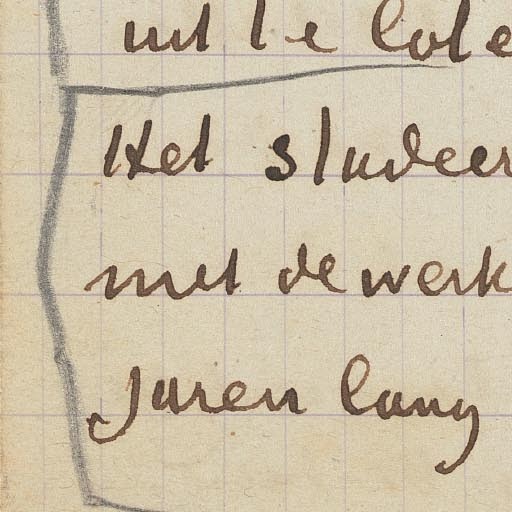 uit te
Het studeer
met de werk
jaren lang